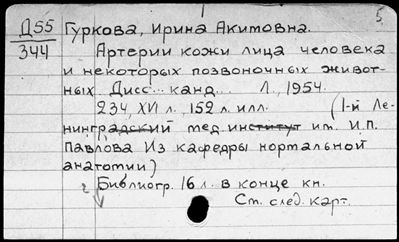 5
Д55 Гуркова, Ирина Акимовна.
344 Артерии кожи лица человека
и некоторых позвоночных живот-
ных. Дисс... канд... Л., 1954.
234, XVI л., 152 л. илл. (1-й Ле-
нинградский мед. институт им. И.П.
Павлова Из кафедры нормальной
анатомии)
Библиогр. 16 л. в конце кн.
См. след. карт.